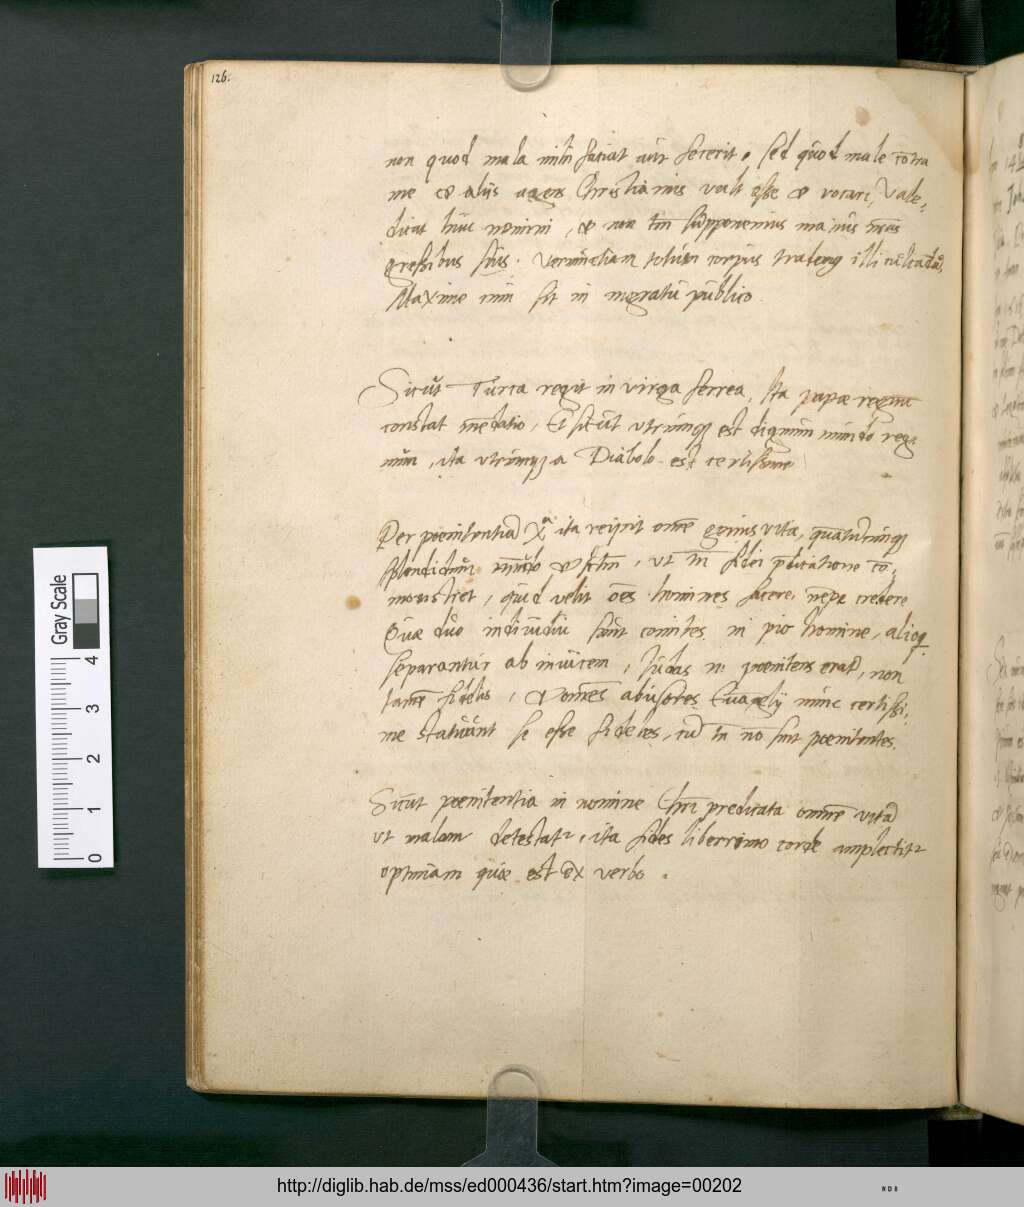 126.
non quod mala mihi faciat aut fecerit, sed quod male cōtra
me et alijs agens Christianus vult esse et vocari, Vale-
dicat huic nomini, et non tm̄ supponemus manus nr̄as
gressibus suis. Verumetiam totum corpus illi
Maxime cum sit in mgratu publico.
Sicut Turca regit in virga ferrea, Ita papae regnū
constat mēdatio, Et sicut vtrumq est dignum mundo reg-
num, ita vtrumq a Diabolo est certissime
Per poenitentiā Xꝰ ita reijcit om̄e genus vitae, quātumcunq
splendidum mundo et sctm̄, ut tn̄ fidei p̄dicatione cō-
monstret, quid velit oēs homines facere, nēpe credere
Quae duo indiuidui sunt comites in pio homine, alioq
separantur ab inuicem, Iudas n. poenitens erat, non
tamē fidelis, et omēs abusores Euāgelij nunc certissi-
me statuunt se esse fideles, cū tn̄ nō sint poenitentes.
Sicut poenitentia in nomine Chri predicata omnē vitā
ut malam detestatr, ita fides liberrimo corde amplectitr
optimam quae est ex verbo.
Gray Scale
4
3
2
1
0
http://diglib.hab.de/mss/ed000436/start.htm?image=00202